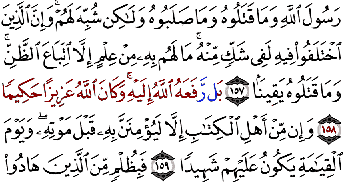 رَسُولَ ٱللَّهِ وَمَا قَتَلُوهُ وَمَا صَلَبُوهُ وَلَٰكِن شُبِّهَ لَهُمْ ۚ وَإِنَّ ٱلَّذِينَ
ٱخْتَلَفُوا۟ فِيهِ لَفِى شَكٍّ مِّنْهُ ۚ مَا لَهُم بِهِۦ مِنْ عِلْمٍ إِلَّا ٱتِّبَاعَ ٱلظَّنِّ ۚ
وَمَا قَتَلُوهُ يَقِينًۢا ١٥٧ بَل رَّفَعَهُ ٱللَّهُ إِلَيْهِ ۚ وَكَانَ ٱللَّهُ عَزِيزًا حَكِيمًا
١٥٨ وَإِن مِّنْ أَهْلِ ٱلْكِتَٰبِ إِلَّا لَيُؤْمِنَنَّ بِهِۦ قَبْلَ مَوْتِهِۦ ۖ وَيَوْمَ
ٱلْقِيَٰمَةِ يَكُونُ عَلَيْهِمْ شَهِيدًا ١٥٩ فَبِظُلْمٍ مِّنَ ٱلَّذِينَ هَادُوا۟